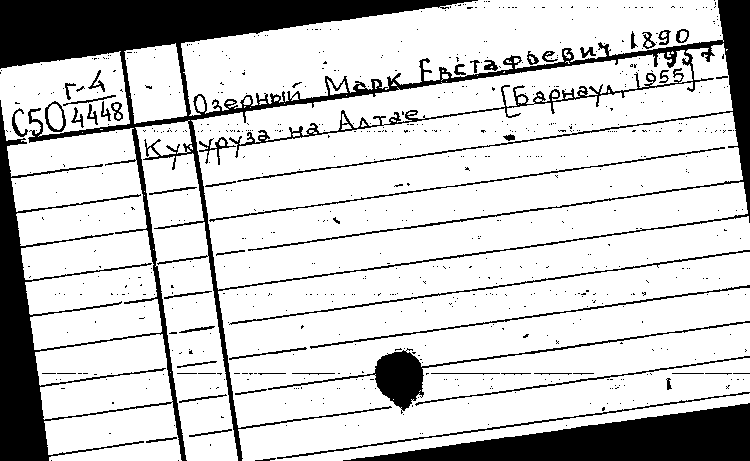 Г-4
С50 4448
Озерный, Марк Евстафьевич, 1890
1957
Кукуруза на Алтае. [Барнаул, 1955]